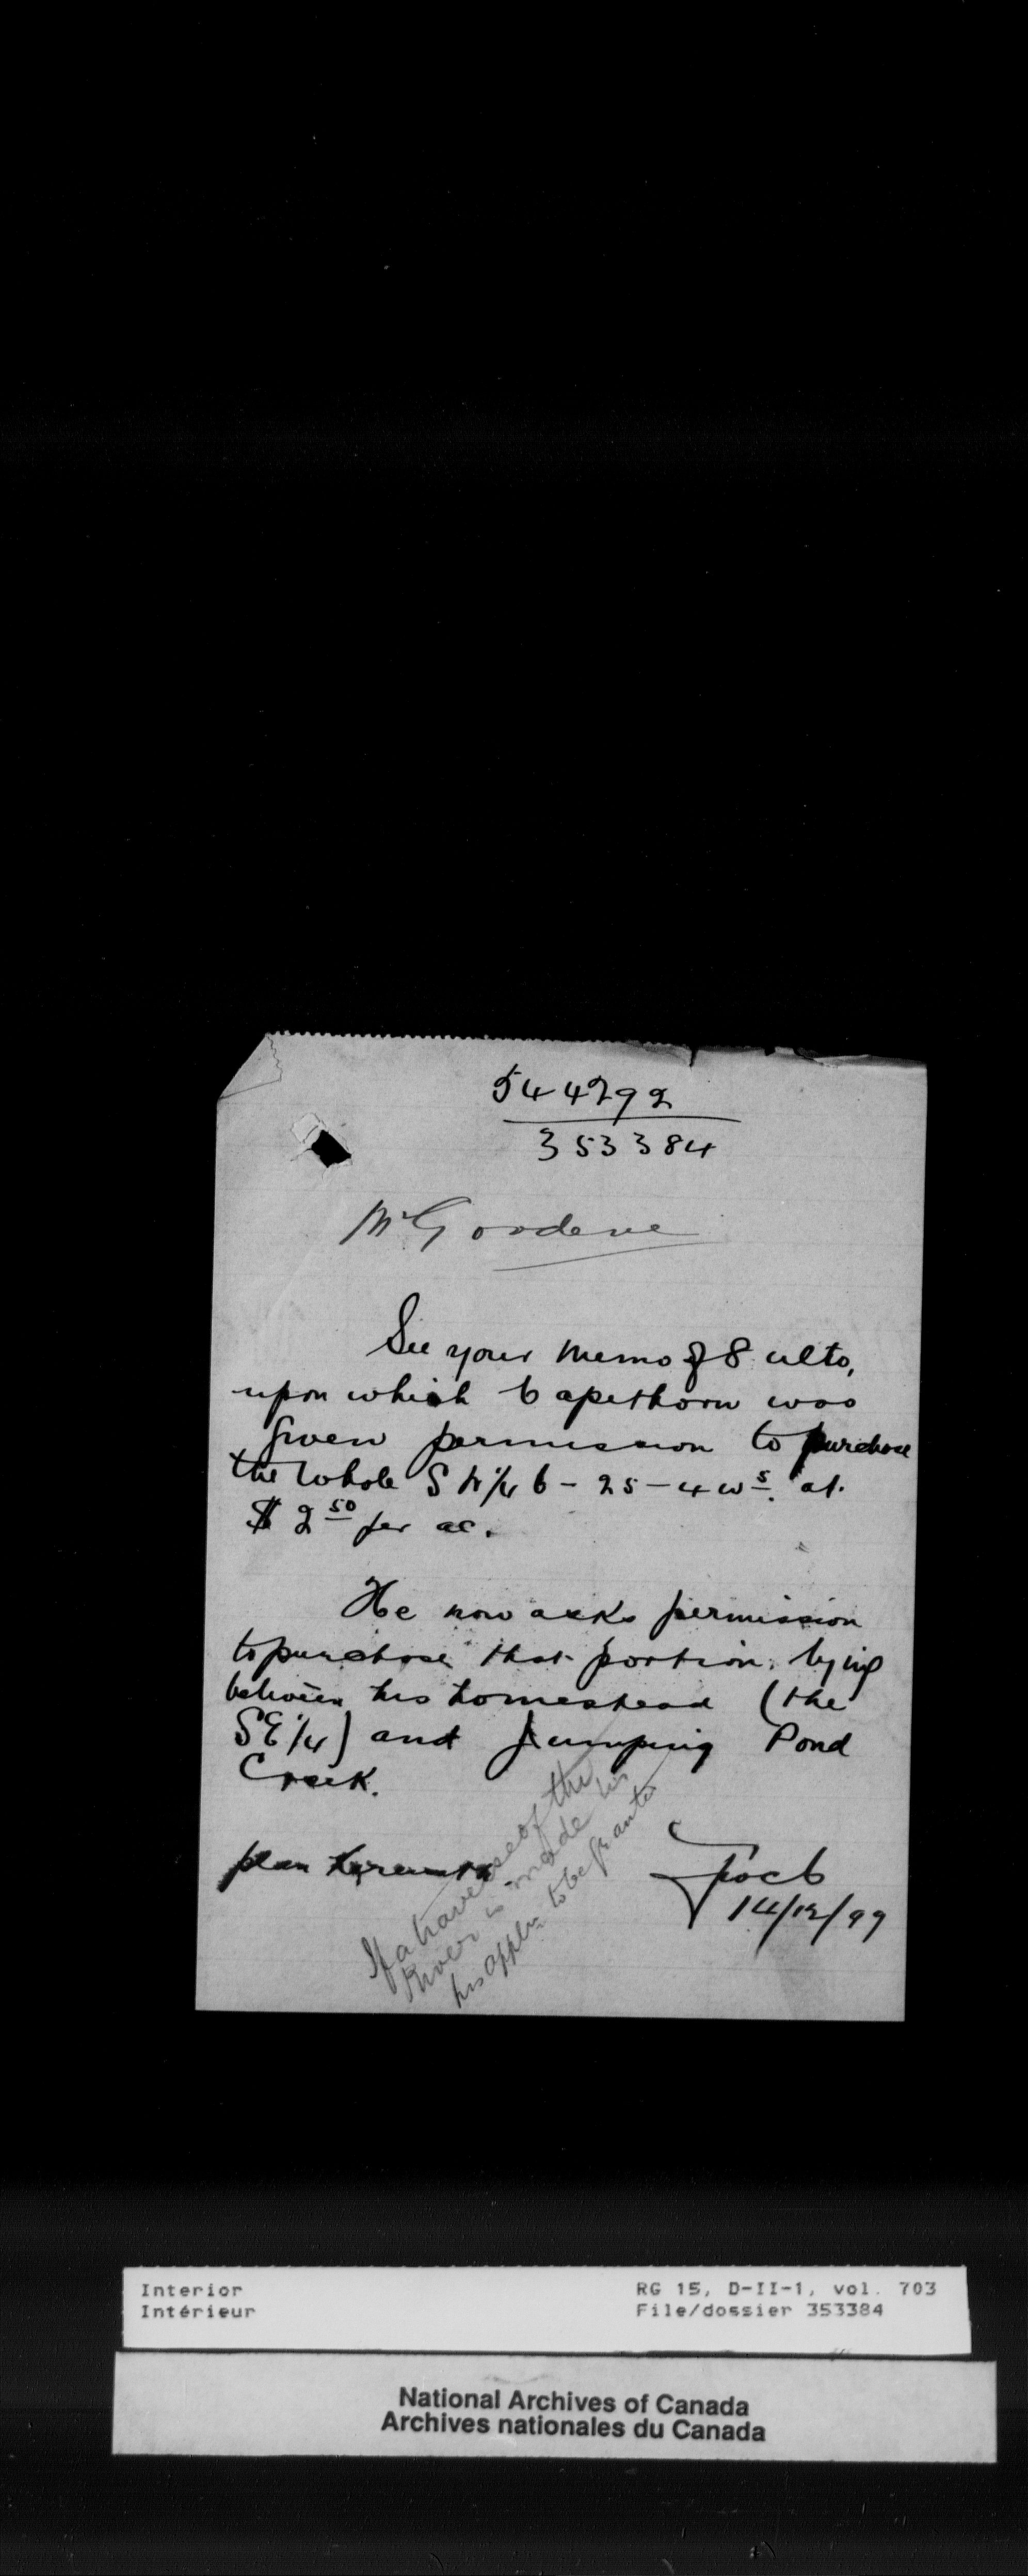 544292
353384
Mr Goodeve
See your memo of 8 ulto,
upon which Capethorn was
given permission to purchase
the whole SW¼ 6-25-4 w 5. at.
$ 2 50 per ac.
He now asks permission
to purchase that portion. lying
between his homestead (the
SE¼) and Jumping Pond
Creek.
plan herewith.
14/12/99
If a traverse of the
River is made his
his appln to be granted
Interior
Intérieur
RG 15, D-II-1, vol. 703
File/dossier 353384
National Archives of Canada
Archives nationales du Canada